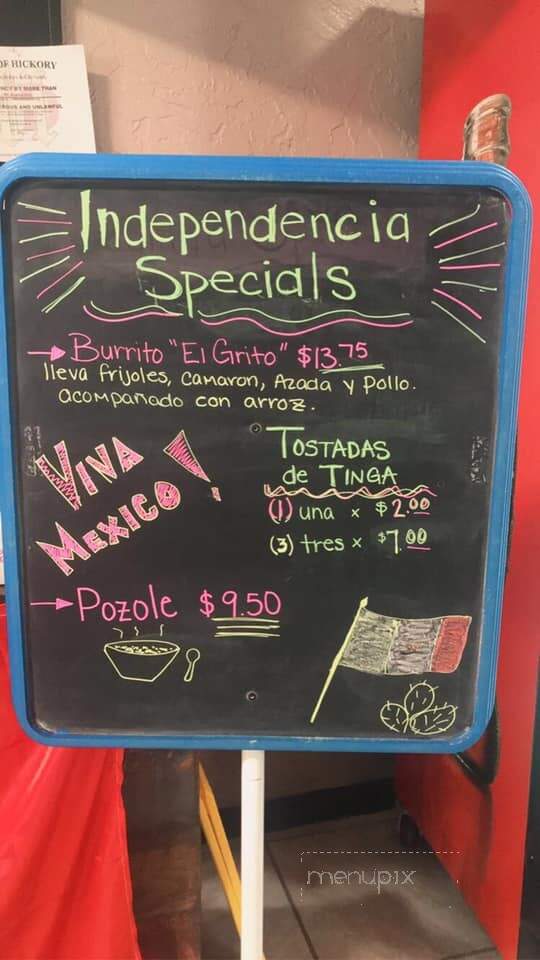 OF HICKORY
NCY BY MORE THAN
EROUS AND UNLAWFUL
Independencia
Specials
Burrito "El Grito" $13.75
lleva frijoles, Camaron, Azada y Pollo.
acompañado con arroz.
VIVA
MEXICO!
TOSTADAS
de TINGA
(1) una x $2.00
(3) tres x $7.00
Pozole $9.50
menupix